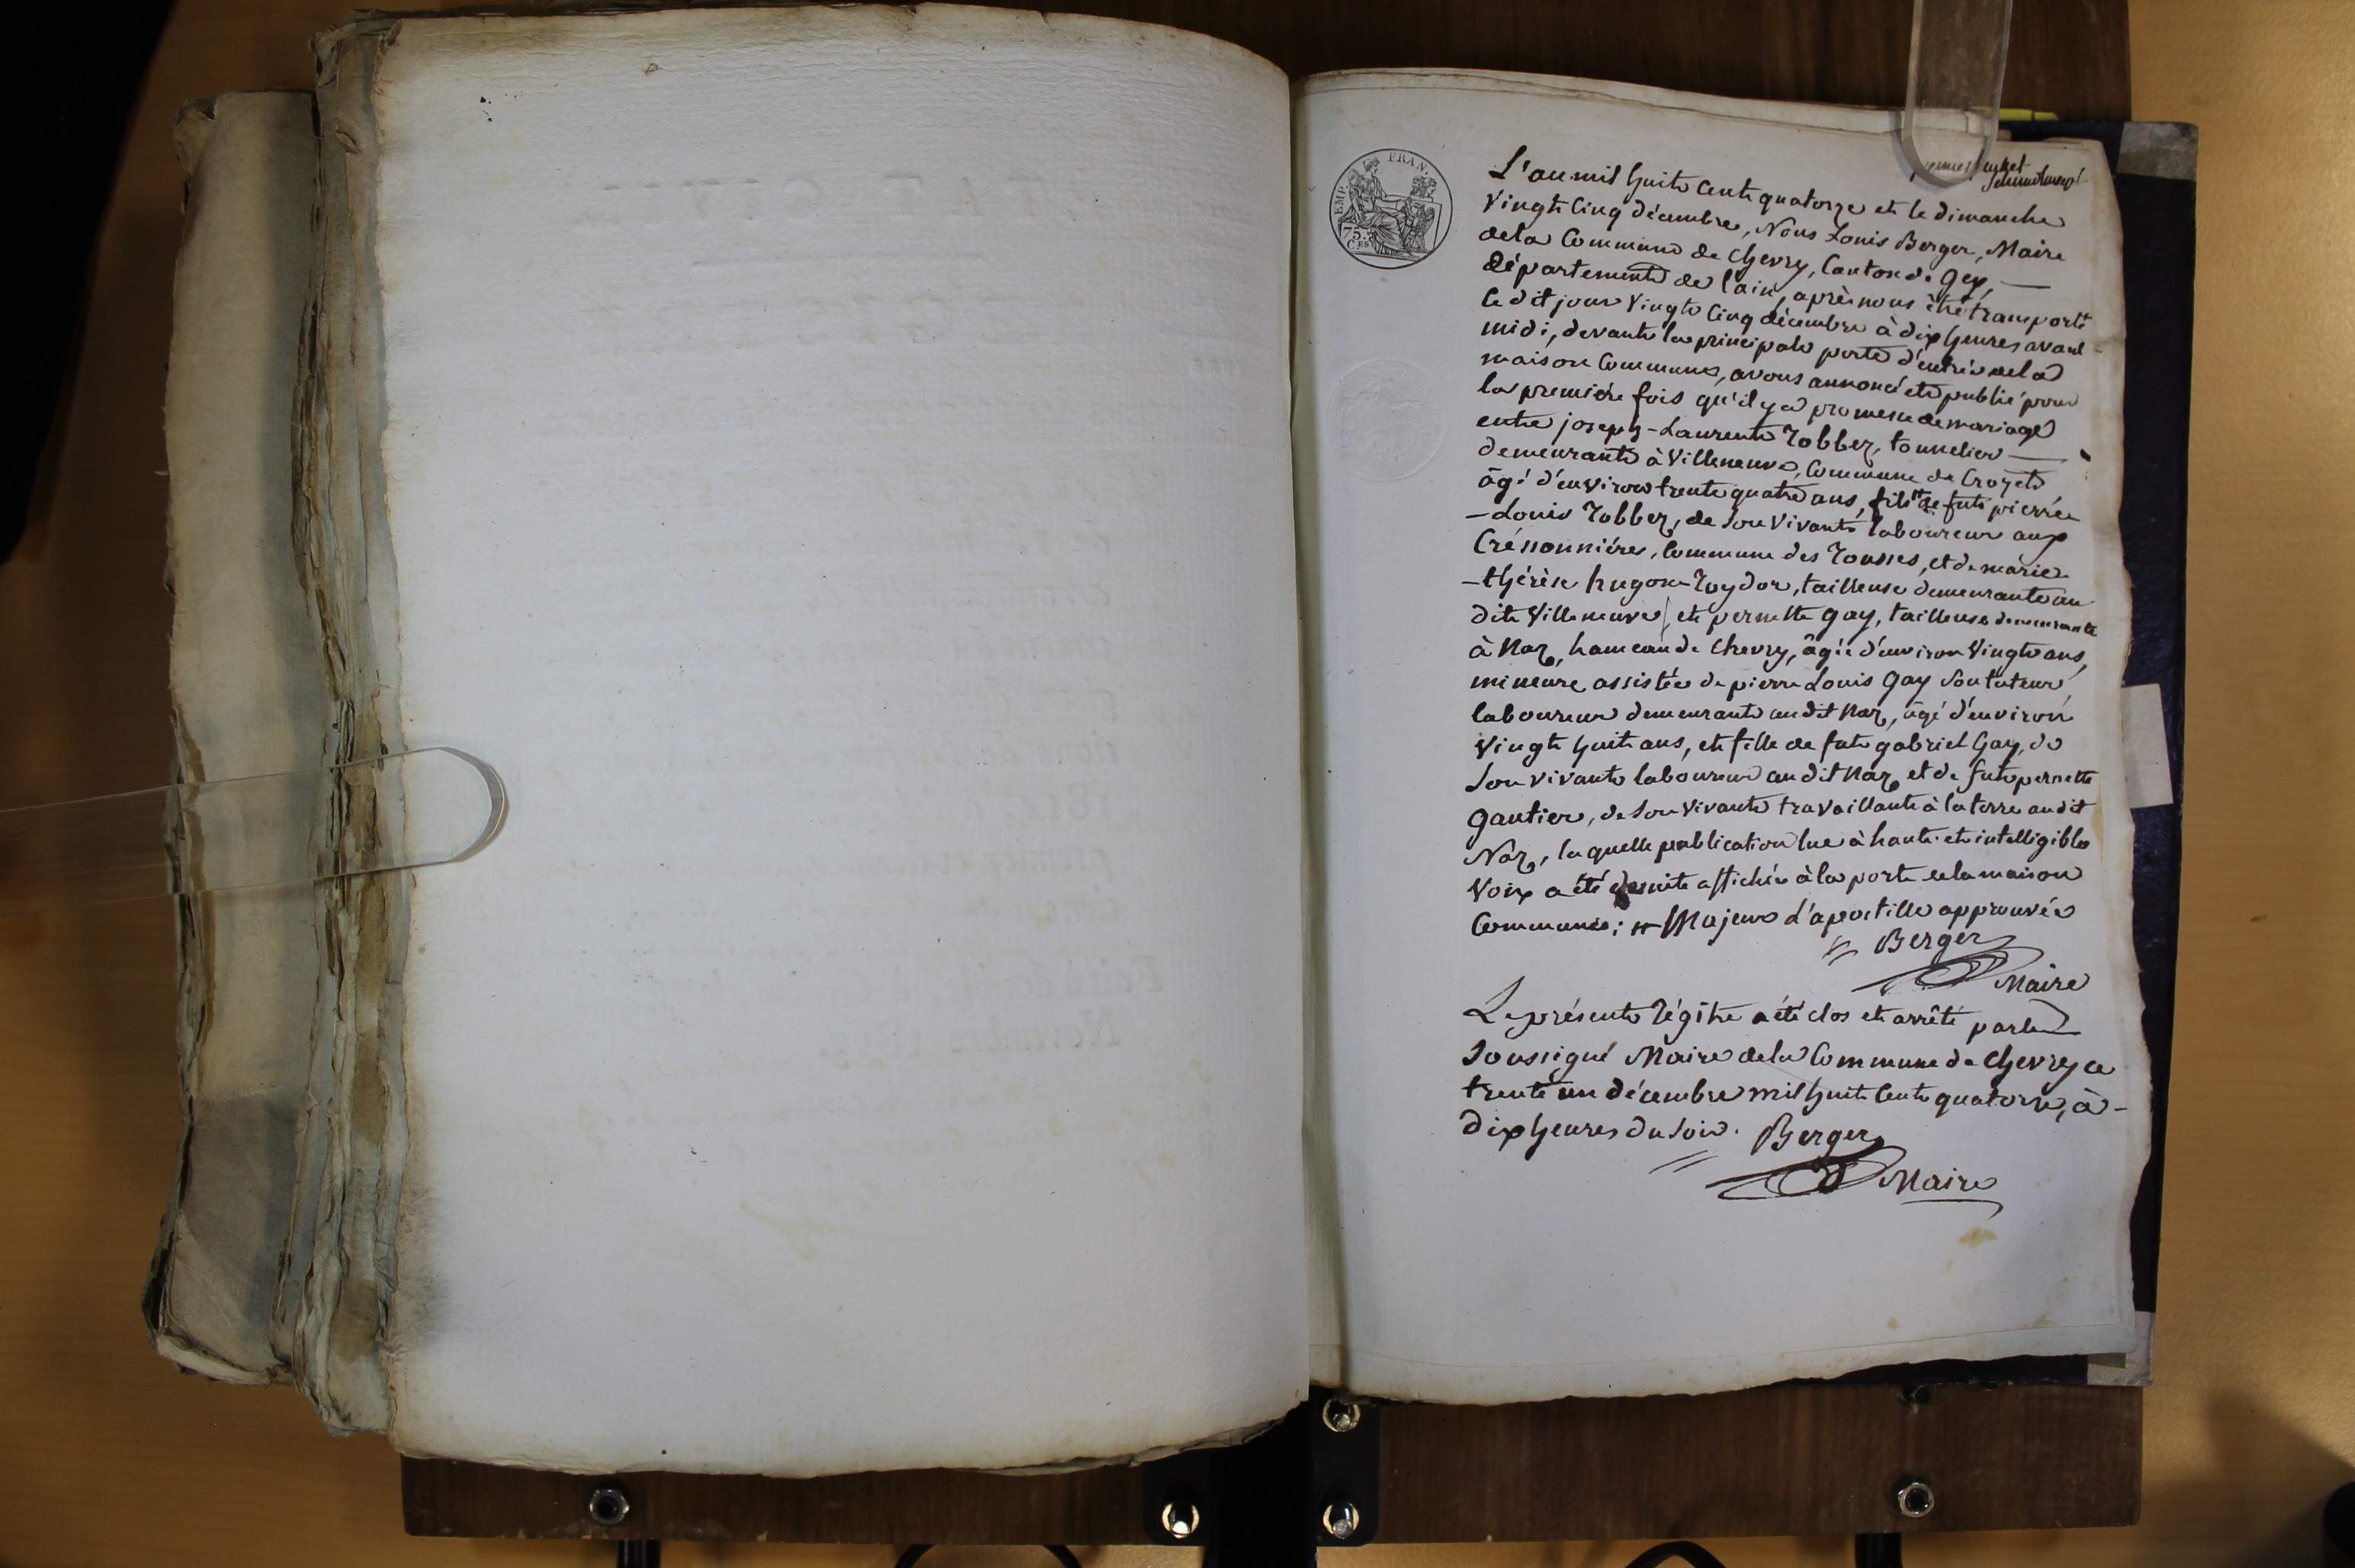 EMP. FRAN.
75.
Ces
L'an mil huit cent quatorze et le dimanche
vingt cinq décembre, Nous Louis Berger, Maire
de la Commune de Chevry, Canton de Gex, —
département de l'ain, après nous être transporté
le dit jour vingt cinq décembre à dix heures avant
midi, devant la principale porte d'entrée de la
maison Commune, avons annoncé et publié pour
la première fois qu'il y a promesse de mariage
entre joseph-Laurent Robbez, tonnelier —
demeurant à Villeneuve, Commune de Crozet
âgé d'environ trente quatre ans, fils # de fut pierre
-Louis Robbez, de son vivant laboureur aux
Cressonnières, Commune des Rousses, et de marie
-thérèse hugon-Roydor, tailleuse demeurante au
dit Villeneuve, et pernette gay, tailleuse demeurante
à Naz, hameau de Chevry, âgée d'environ vingt ans,
mineure assistée de pierre Louis Gay son tuteur,
laboureur demeurant au dit Naz, âgé d'environ
vingt huit ans, et fille de fut gabriel Gay, de
son vivant laboureur au dit Naz, et de fut pernette
gautier, de son vivant travaillante à la terre au dit
Naz, laquelle publication lue à haute et intelligible
voix a été ensuite affichée à la porte de la maison
Commune; # Majeur d'apostille approuvée
Berger
Maire
Le présent régître a été clos et arrêté par le
soussigné Maire de la Commune de Chevry ce
trente un décembre mil huit cent quatorze, à -
dix heures du soir. Berger
Maire